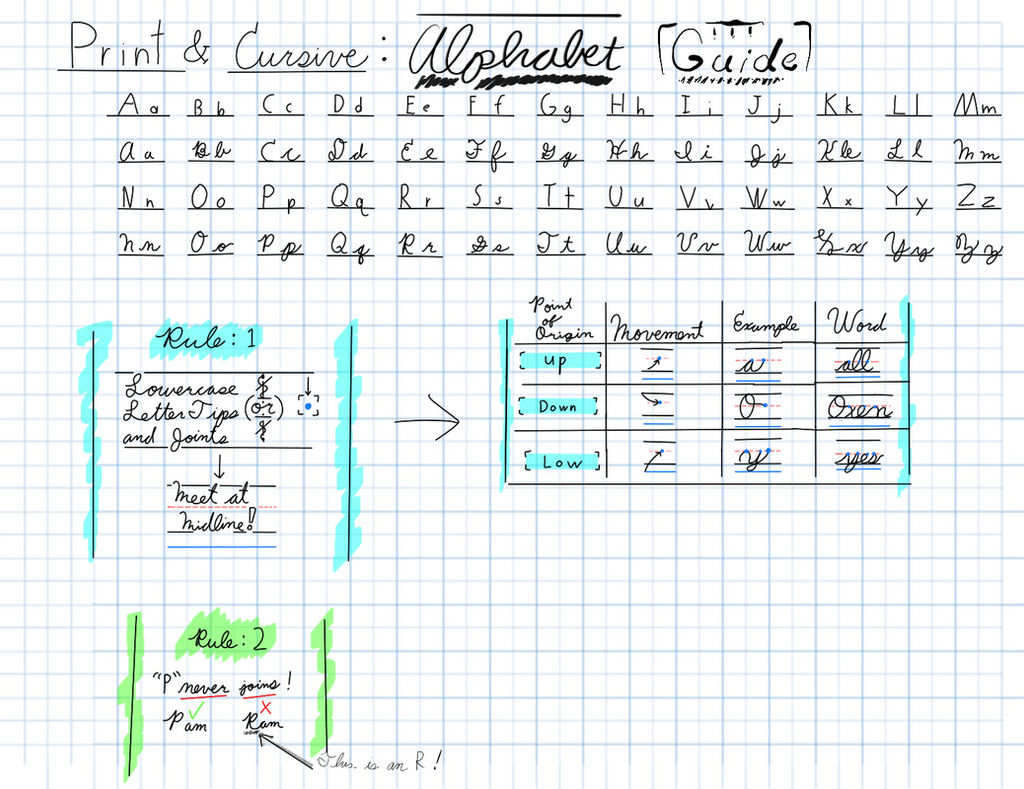 Print & Cursive: Alphabet [Guide]
A a B b C c D d E e F f G g H h I i J j K k L l M m
A a B b C c D d E e F f G g H h I i J j K k L l M m
N n O o P p Q q R r S s T t U u V v W w X x Y y Z z
N n O o P p Q q R r S s T t U u V v W w X x Y y Z z
Rule: 1
Lowercase
Letter Tips (or)
and Joints
Meet at
Midline!
Point of Origin Movement Example Word
[Up] a all
[Down] O Oxen
[Low] y yes
Rule: 2
"P" never joins!
Pam Ram
This is an R!